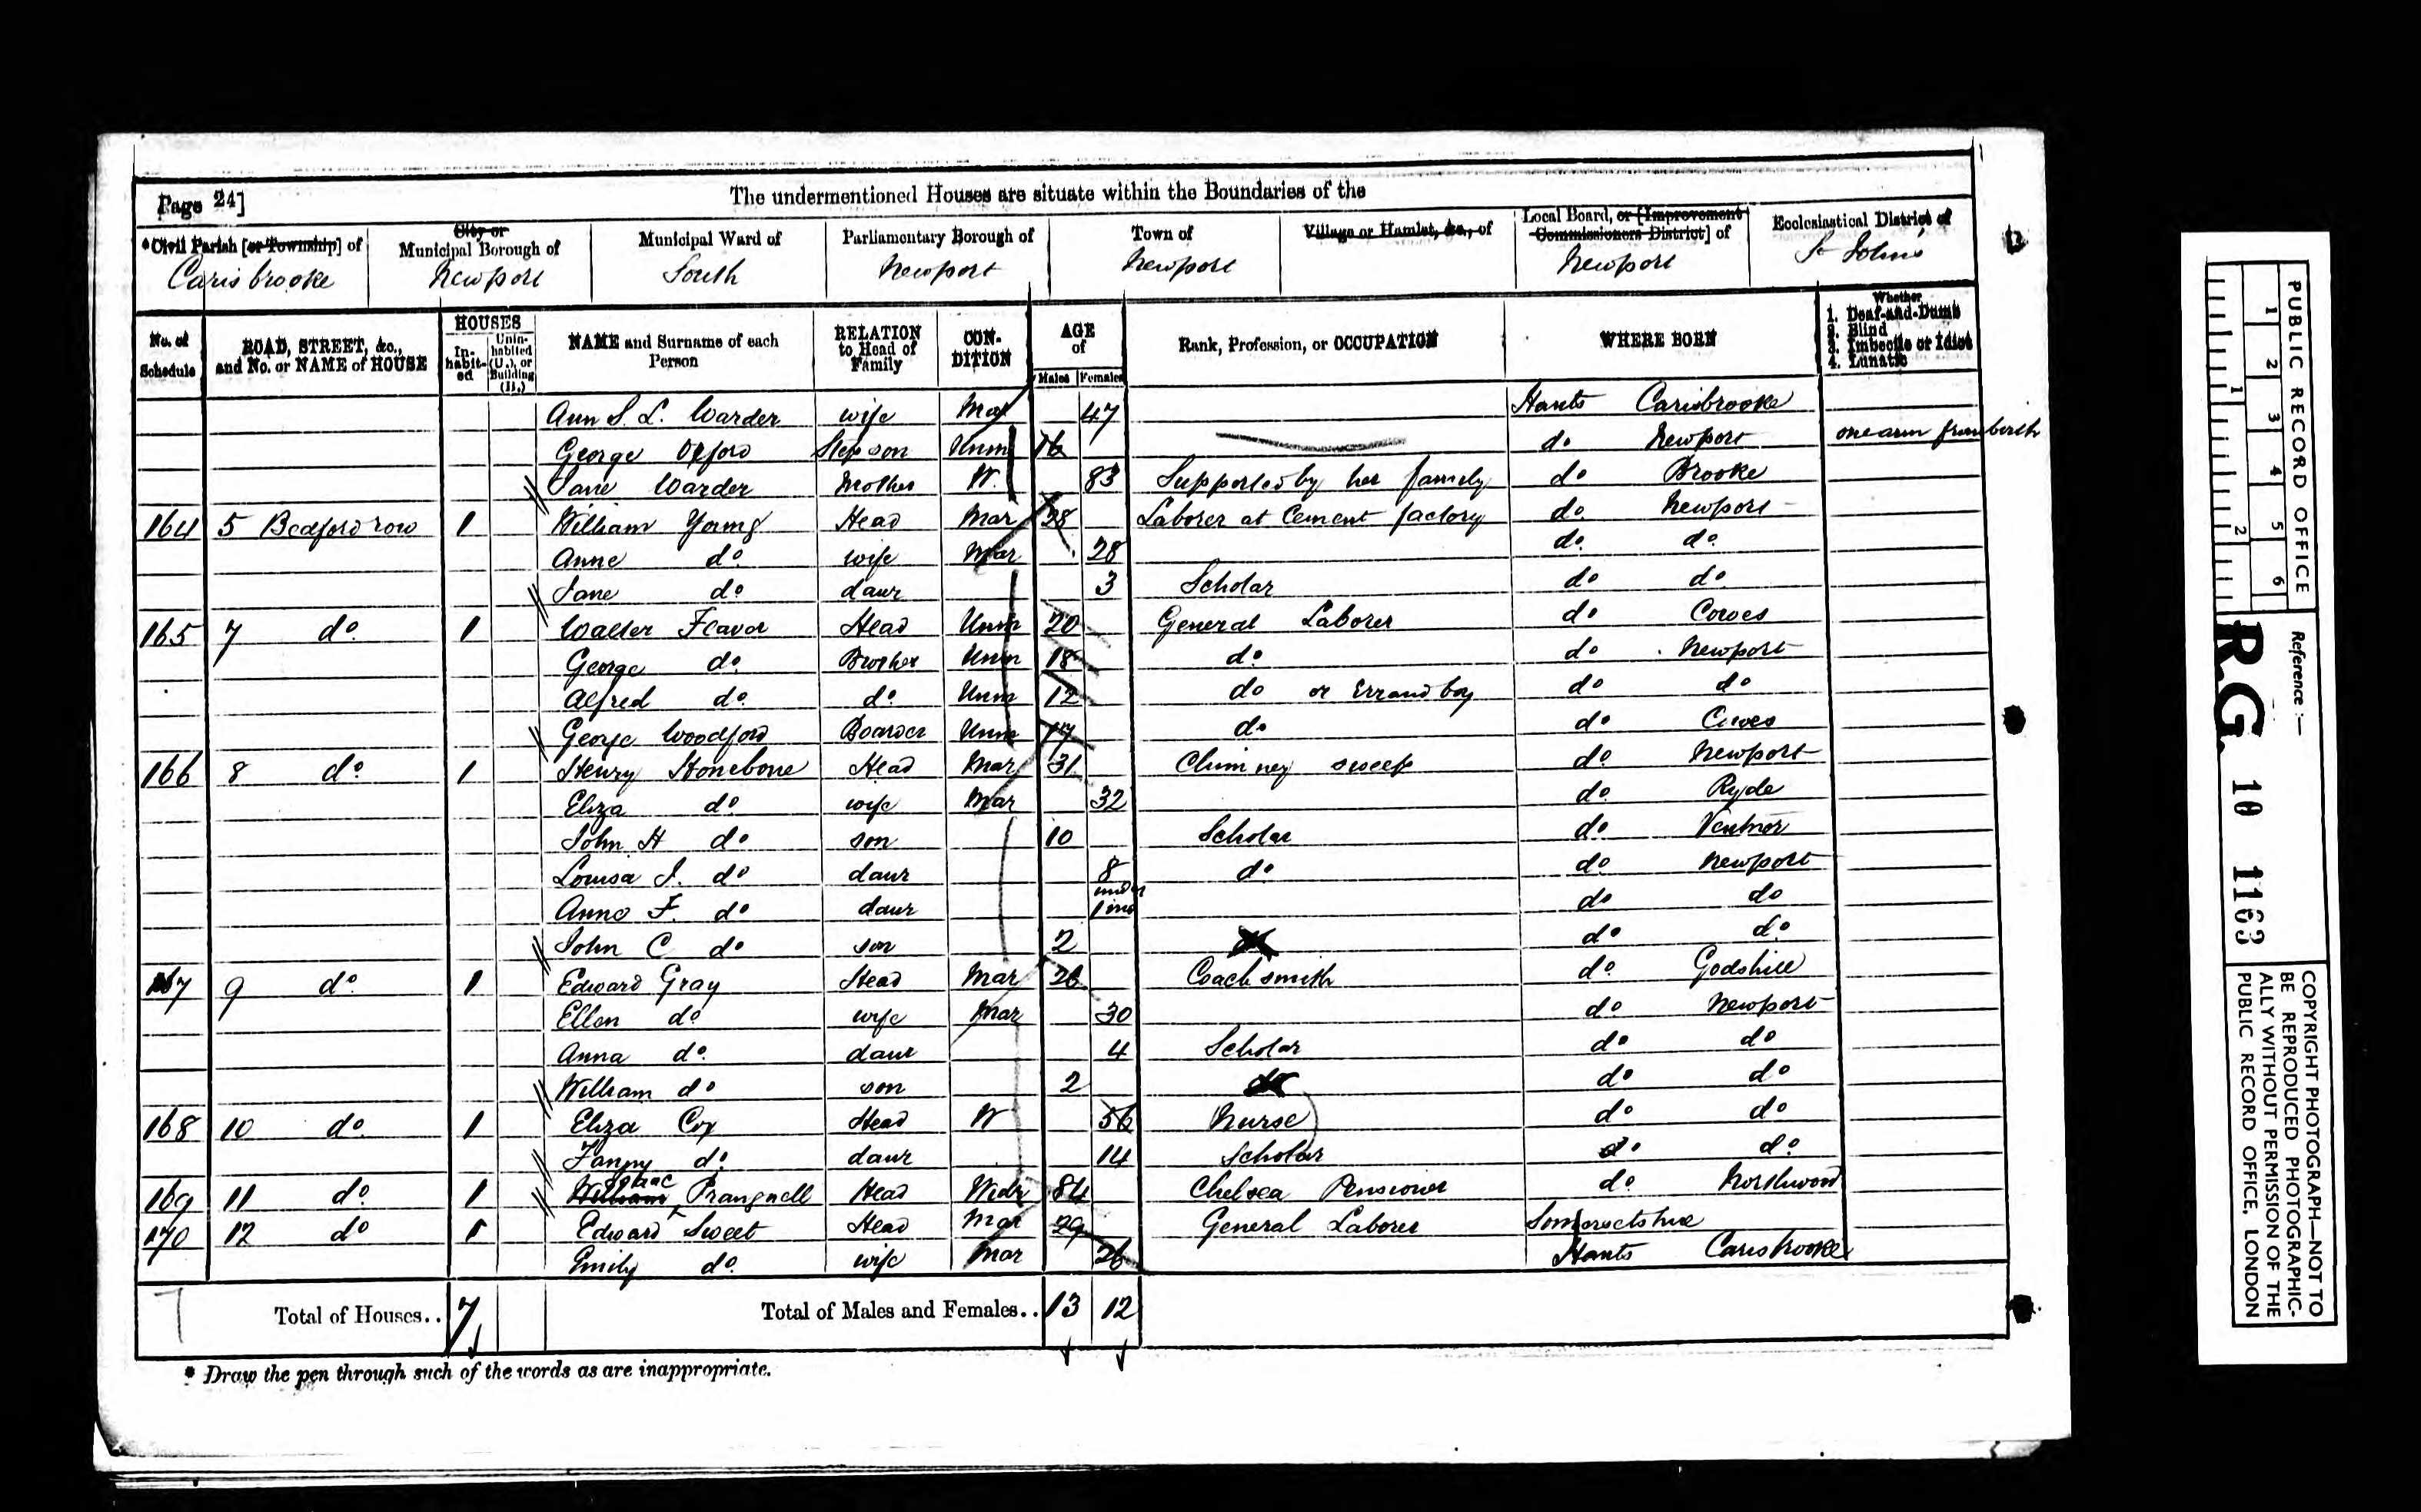 Page 24]
The undermentioned Houses are situate within the Boundaries of the
*Civil Parish [or Township] of
City or Municipal Borough of
Municipal Ward of
Parliamentary Borough of
Town of
Village or Hamlet, &c., of
Local Board, or [Improvement Commissioners District] of
Ecclesiastical District of
Carisbrooke Newport South Newport Newport Newport St Johns
No. of Schedule
ROAD, STREET, &c., and No. or NAME of HOUSE
HOUSES
Inhabited
Uninhabited (U.), or Building (B.)
NAME and Surname of each Person
RELATION to Head of Family
CONDITION
AGE of
Males Females
Rank, Profession, or OCCUPATION
WHERE BORN
Whether
1. Deaf-and-Dumb
2. Blind
3. Imbecile or Idiot
4. Lunatic
Ann S. L. Warder wife Mar 47 Hants Carisbrooke
George Oxford Step son Unm 16 do Newport one arm from birth
Jane Warder Mother W. 83 Supported by her family do Brooke
164 5 Bedford row 1 William Young Head Mar 28 Laborer at Cement factory do Newport
Anne do wife Mar 28 do do
Jane do daur 3 Scholar do do
165 7 do 1 Walter Flavor Head Unm 20 General Laborer do Cowes
George do Brother Unm 18 do do Newport
Alfred do do Unm 12 do or Errand boy do do
George Woodford Boarder Unm 17 do do Cowes
166 8 do 1 Henry Stonebone Head Mar 31 Chimney sweep do Newport
Eliza do wife Mar 32 do Ryde
John H do son 10 Scholar do Ventnor
Louisa J. do daur 8 do do Newport
Anna F. do daur under 1 mo do do
John C do son 2 do do
167 9 do 1 Edward Gray Head Mar 26 Coach smith do Godshill
Ellen do wife Mar 30 do Newport
Anna do daur 4 Scholar do do
William do son 2 do do do
168 10 do 1 Eliza Cox Head W 56 Nurse do do
Fanny do daur 14 Scholar do do
169 11 do 1 William Isaac Prangnell Head Widr 84 Chelsea Pensioner do Northwood
170 12 do 1 Edward Sweet Head Mar 29 General Laborer Somersetshire
Emily do wife Mar 26 Hants Carisbrooke
Total of Houses.. 7 Total of Males and Females.. 13 12
* Draw the pen through such of the words as are inappropriate.
PUBLIC RECORD OFFICE
1 2 3 4 5 6
1 2
Reference :—
R.G. 10 1163
COPYRIGHT PHOTOGRAPH—NOT TO BE REPRODUCED PHOTOGRAPHICALLY WITHOUT PERMISSION OF THE PUBLIC RECORD OFFICE, LONDON